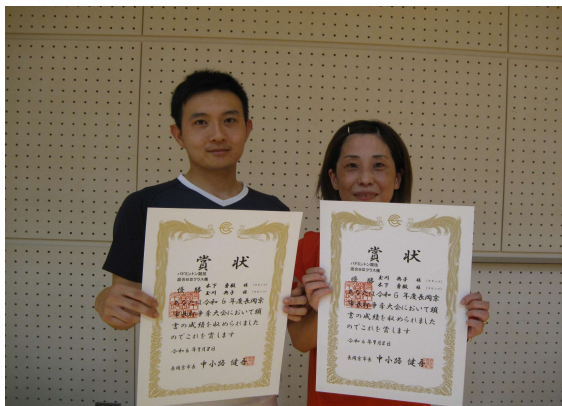 賞状
バドミントン競技
混合B級クラスの部
優勝 木下 様
金川 典子 様
あなたは令和6年度長岡京
市長杯争奪大会において頭
書の成績を収められました
のでこれを賞します
令和6年9月8日
長岡京市長 中小路 健吾
賞状
バドミントン競技
優勝 金川 典子 様
木下 様
あなたは令和6年度長岡京
市長杯争奪大会において頭
書の成績を収められました
のでこれを賞します
令和6年9月8日
長岡京市長 中小路 健吾